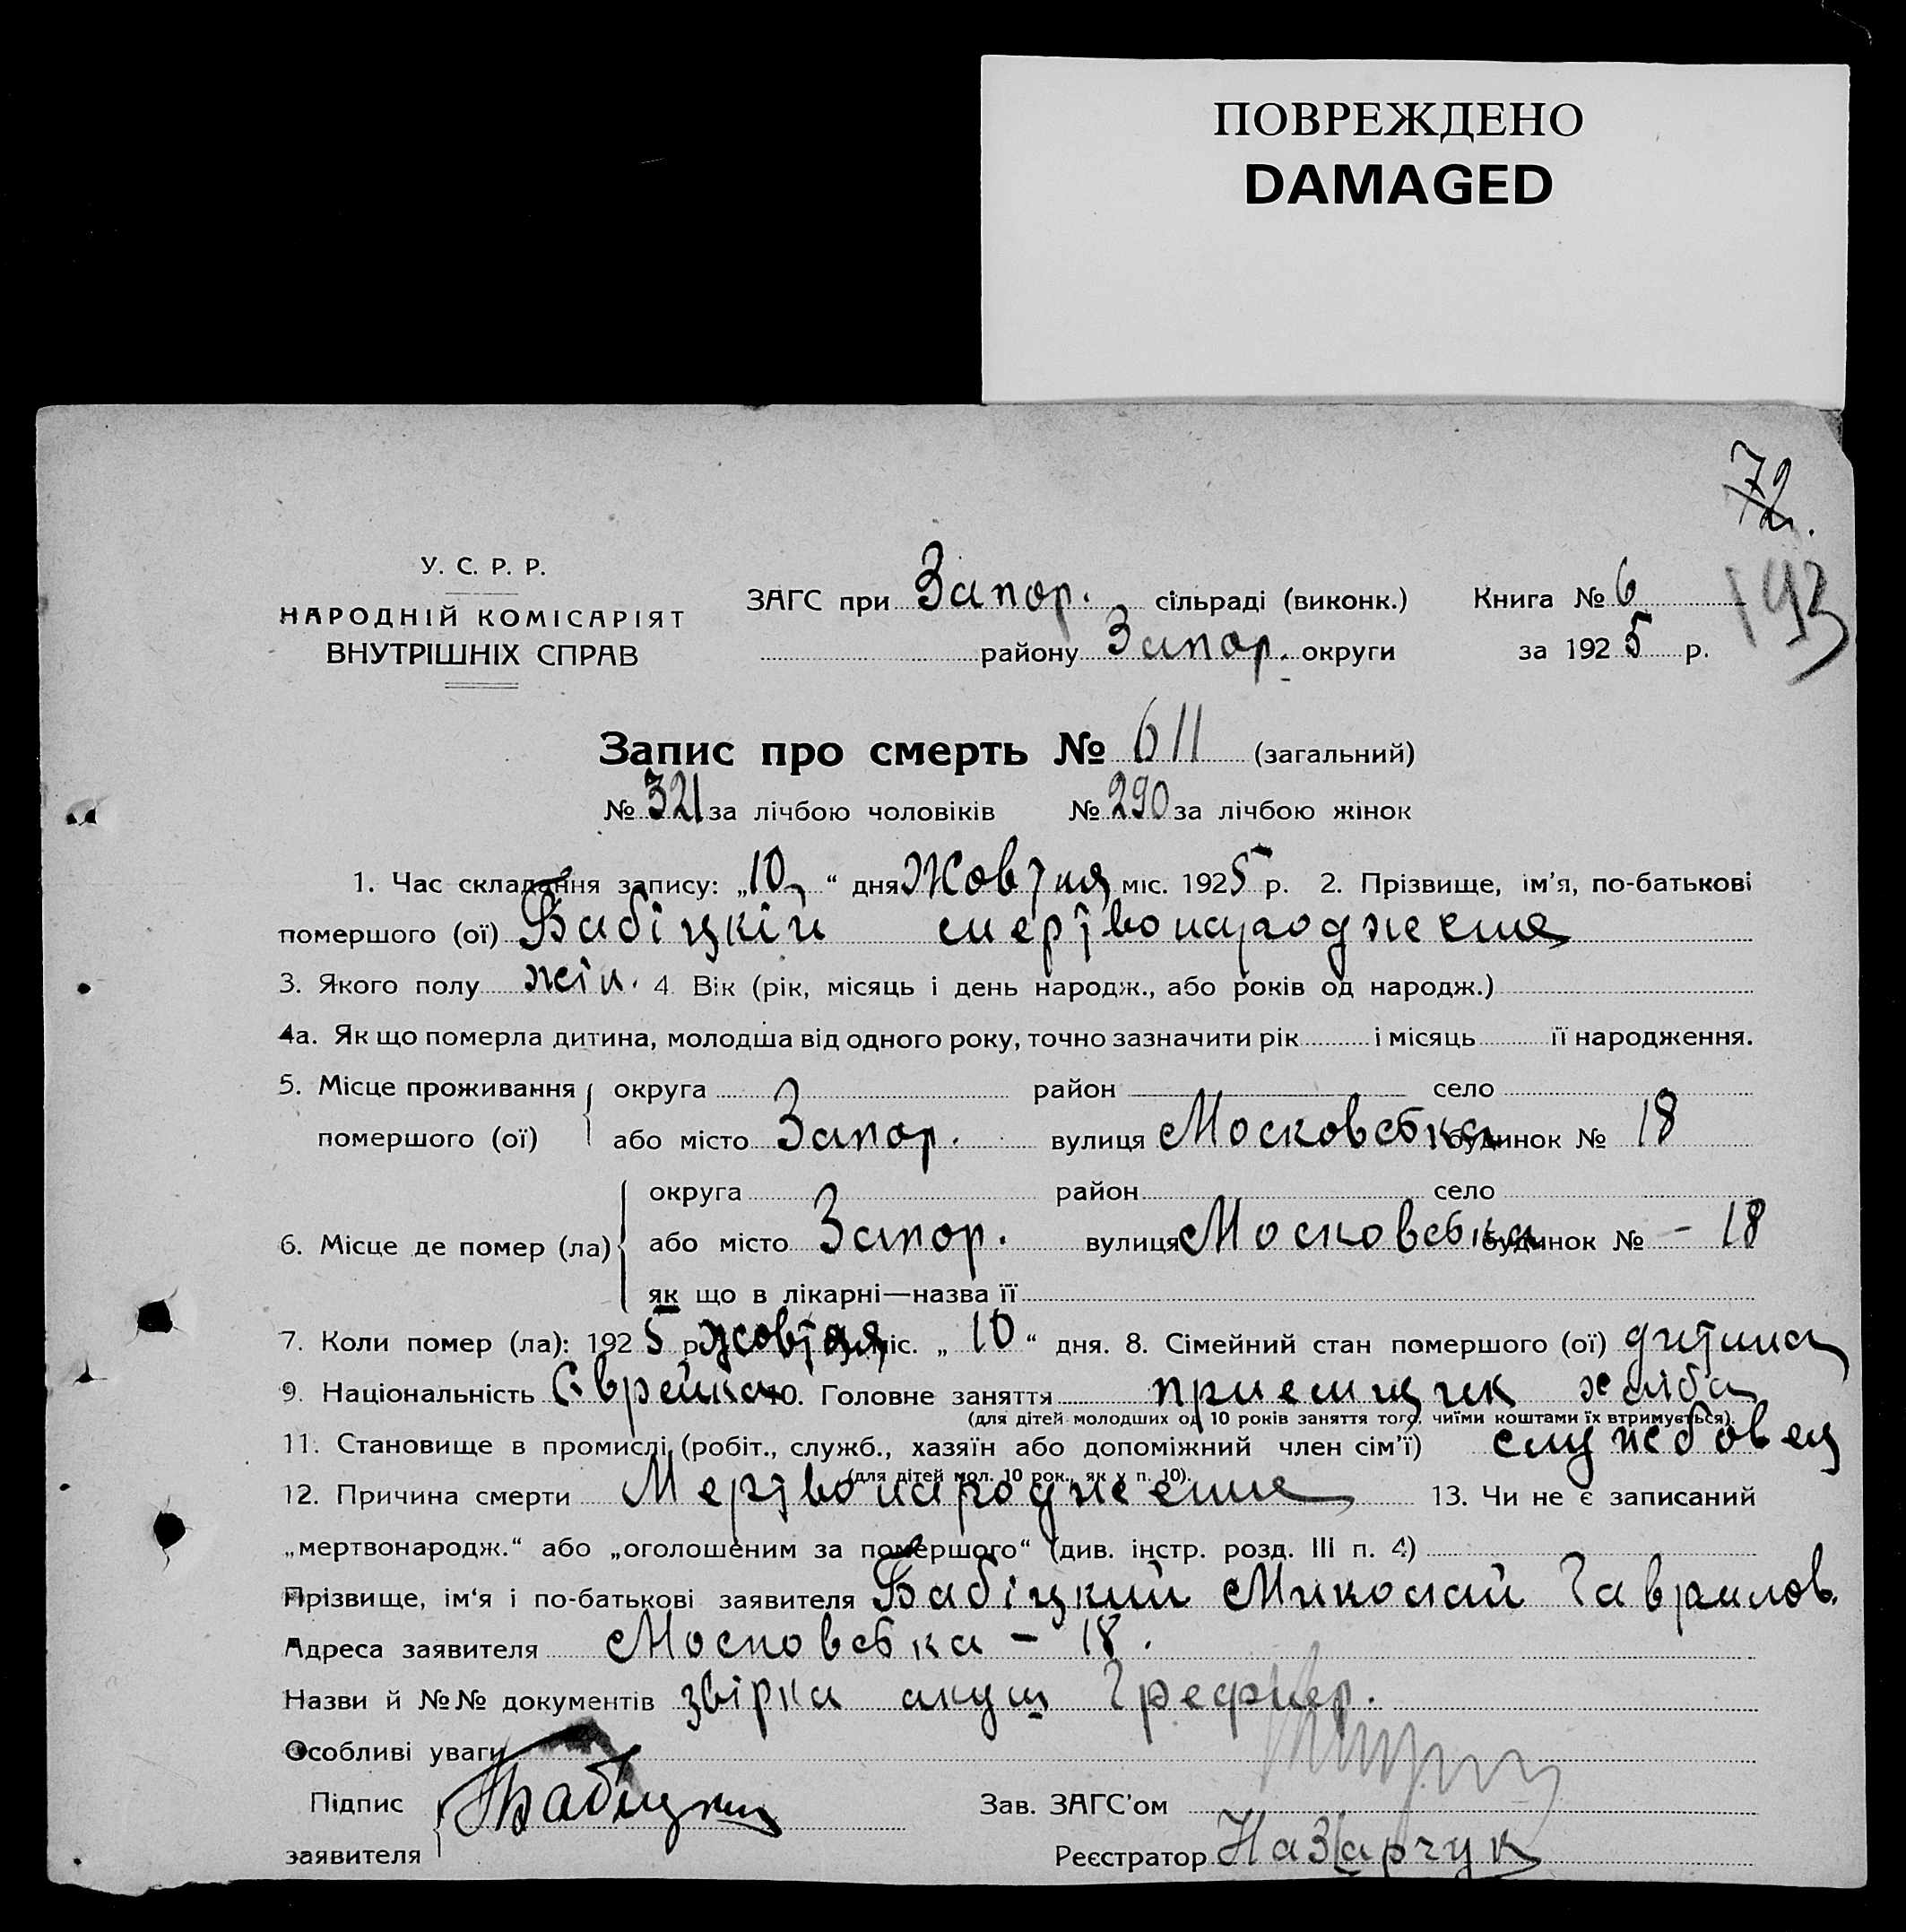 ПОВРЕЖДЕНО
DAMAGED
72.
193
У. С. Р. Р.
НАРОДНІЙ КОМІСАРІЯТ
ВНУТРІШНІХ СПРАВ
ЗАГС при Запор. сільраді (виконк.) Книга № 6
району Запор. округи за 1925 р.
Запис про смерть № 611 (загальний)
№ 321 за лічбою чоловіків № 290 за лічбою жінок
1. Час складання запису: „10“ дня Жовтня міс. 1925 р. 2. Прізвище, ім’я, по-батькові
помершого (ої) Бабіцкій мертвонародження
3. Якого полу жін. 4. Вік (рік, місяць і день народж., або років од народж.)
4а. Як що померла дитина, молодша від одного року, точно зазначити рік і місяць її народження.
5. Місце проживання округа район село
помершого (ої) або місто Запор. вулиця Московська будинок № 18
округа район село
6. Місце де помер (ла) або місто Запор. вулиця Московська будинок № – 18
як що в лікарні—назва її
7. Коли помер (ла): 1925 р. жовтня міс. „10“ дня. 8. Сімейний стан помершого (ої) дитина
9. Національність Єврейка 10. Головне заняття приемщик хліба
(для дітей молодших од 10 років заняття того, чиїми коштами їх втримується).
11. Становище в промислі (робіт., служб., хазяїн або допоміжний член сім’ї) службовец
(для дітей мол. 10 рок., як у п. 10).
12. Причина смерти Мертвонародження 13. Чи не є записаний
„мертвонародж.“ або „оголошеним за помершого“ (див. інстр. розд. III п. 4)
Прізвище, ім‘я і по-батькові заявителя Бабіцкий Миколай Гаврилов.
Адреса заявителя Московська – 18.
Назви й №№ документів звірка акуш
Особливі уваги
Підпис Бабицкий Зав. ЗАГС’ом
заявителя Реєстратор Назарчук